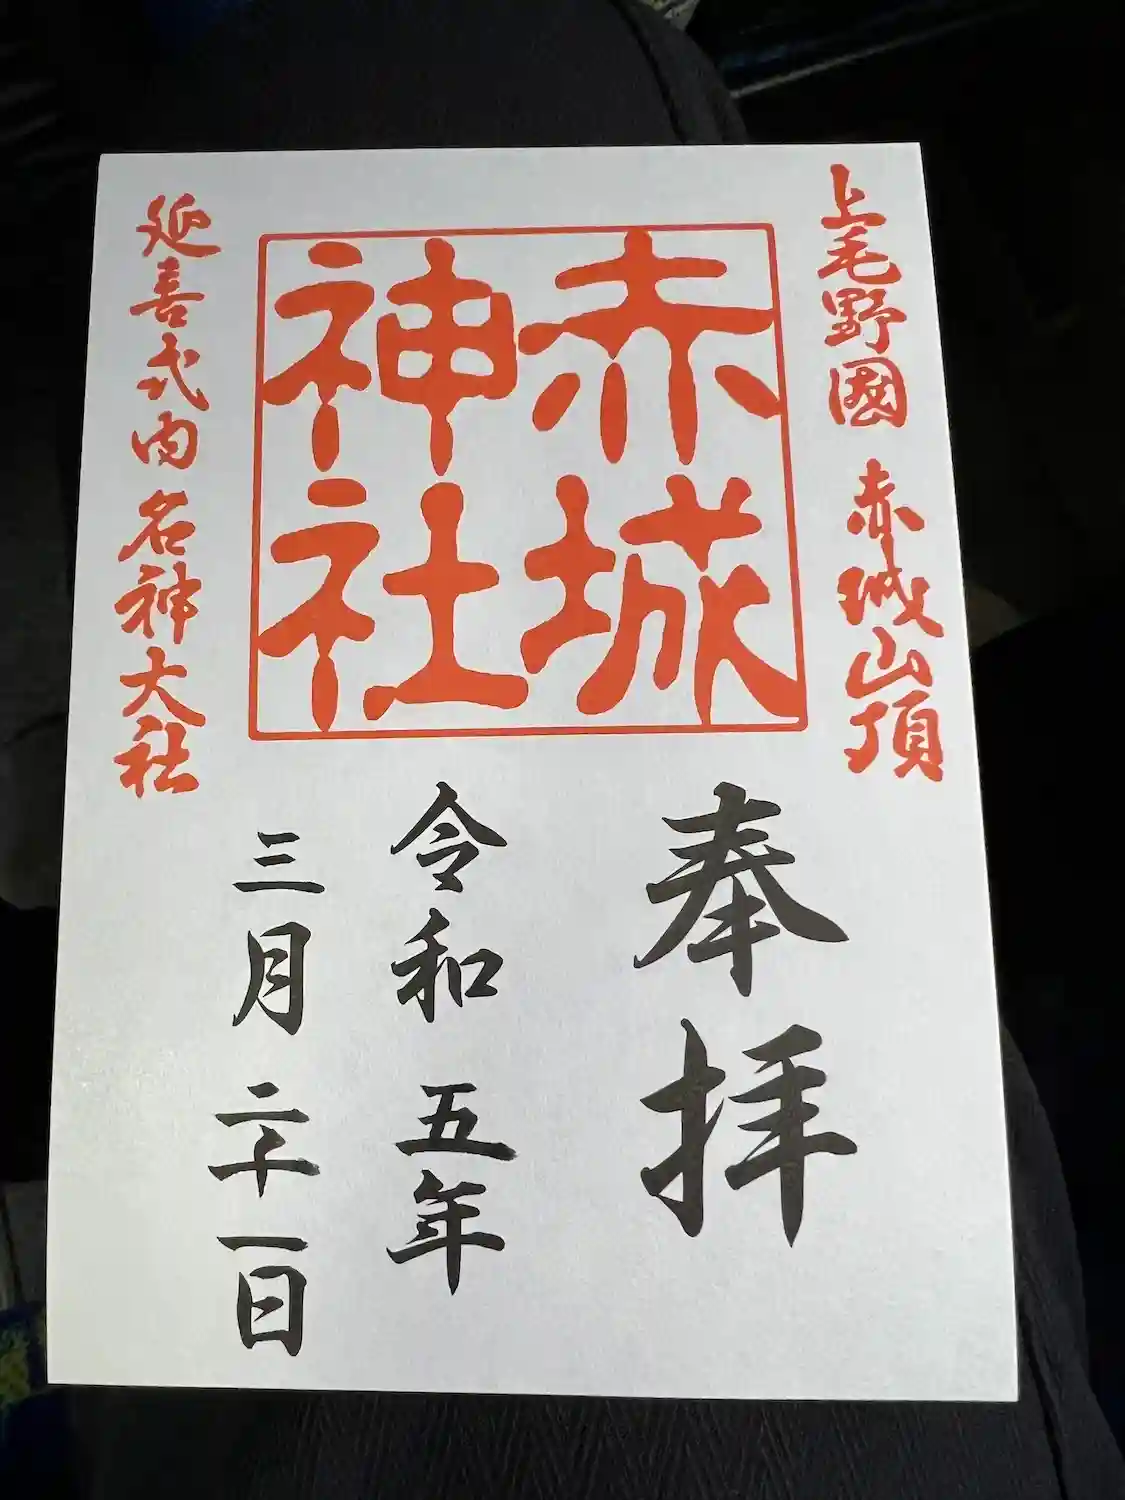 上毛野國 赤城山頂
赤城
神社
延喜式内名神大社
奉拝
令和 五年
三月 二十一日